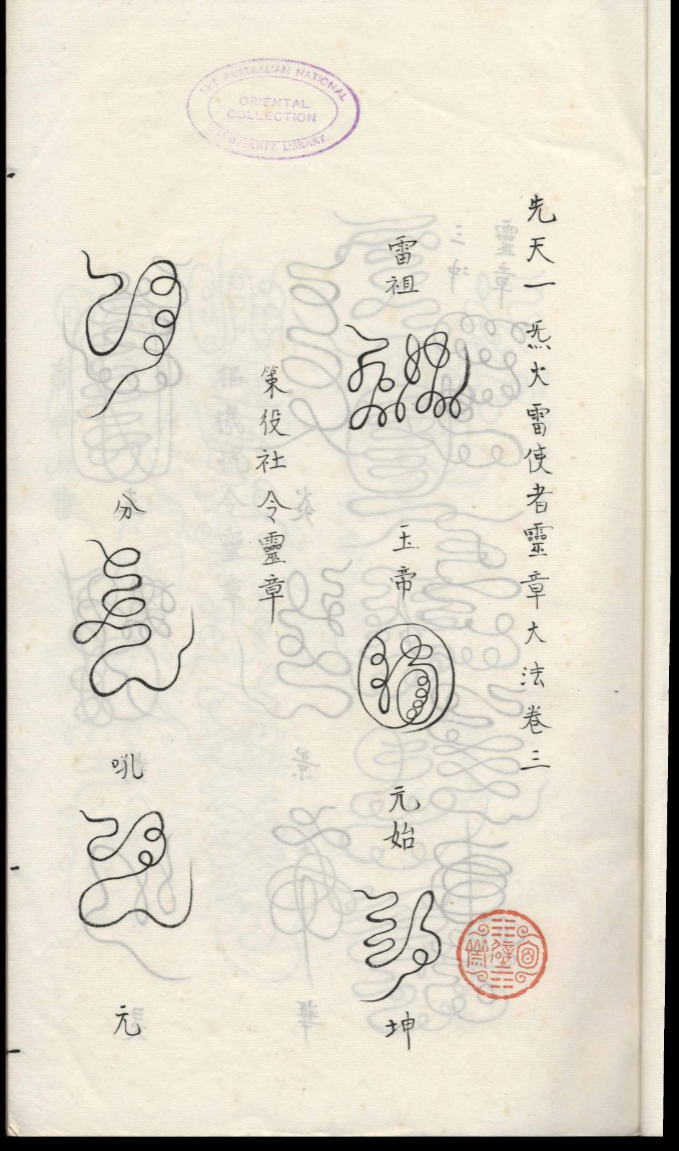 THE AUSTRALIAN NATIONAL
ORIENTAL
COLLECTION
UNIVERSITY LIBRARY
先天一炁火雷使者靈章大法卷三
雷祖 玉帝 元始 坤
策役社令靈章
分 吼 元